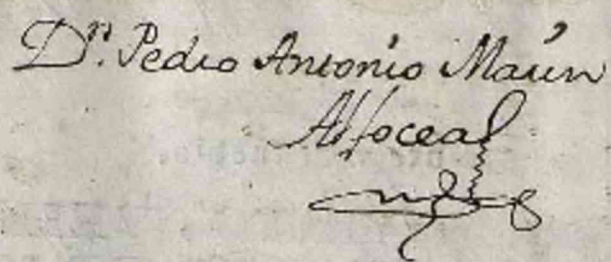 Dn. Pedro Antonio Marin
Alfocea